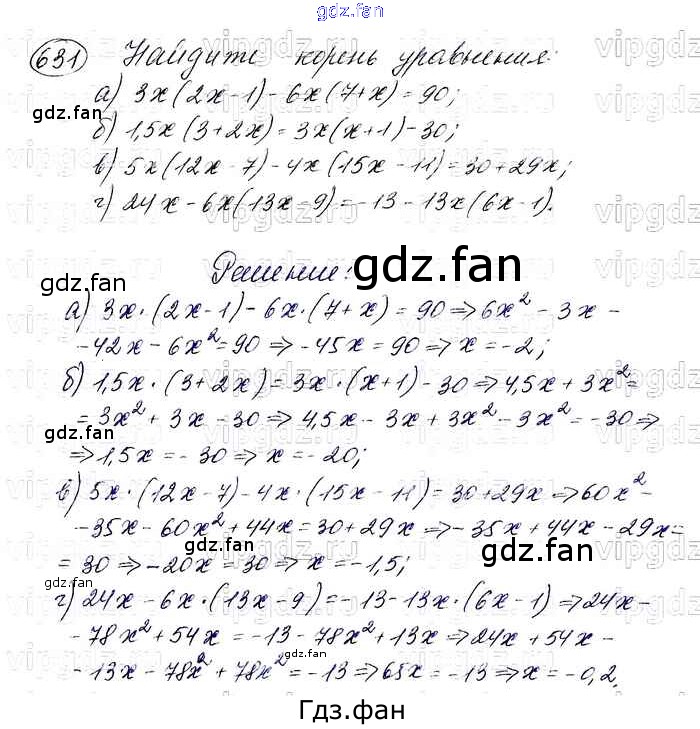 gdz.fan
631 Найдите корень уравнения:
а) 3x(2x-1)-6x(7+x)=90;
gdz.fan
б) 1,5x(3+2x)=3x(x+1)-30;
в) 5x(12x-7)-4x(15x-11)=30+29x;
г) 24x-6x(13x-9)=-13-13x(6x-1).
gdz.fan
Решение:
gdz.fan
gdz.fan
а) 3x·(2x-1)-6x·(7+x)=90⇒6x²-3x-
-42x-6x²=90⇒-45x=90⇒x=-2;
б) 1,5x·(3+2x)=3x·(x+1)-30⇒4,5x+3x²=
gdz.fan
=3x²+3x-30⇒4,5x-3x+3x²-3x²=-30⇒
gdz.fan
⇒1,5x=-30⇒x=-20;
в) 5x·(12x-7)-4x·(15x-11)=30+29x⇒60x²-
gdz.fan
-35x-60x²+44x=30+29x⇒-35x+44x-29x=
gdz.fan
=30⇒-20x=30⇒x=-1,5;
gdz.fan
г) 24x-6x·(13x-9)=-13-13x·(6x-1)⇒24x-
gdz.fan
-78x²+54x=-13-78x²+13x⇒24x+54x-
gdz.fan
-13x-78x²+78x²=-13⇒65x=-13⇒x=-0,2.
Гдз.фан